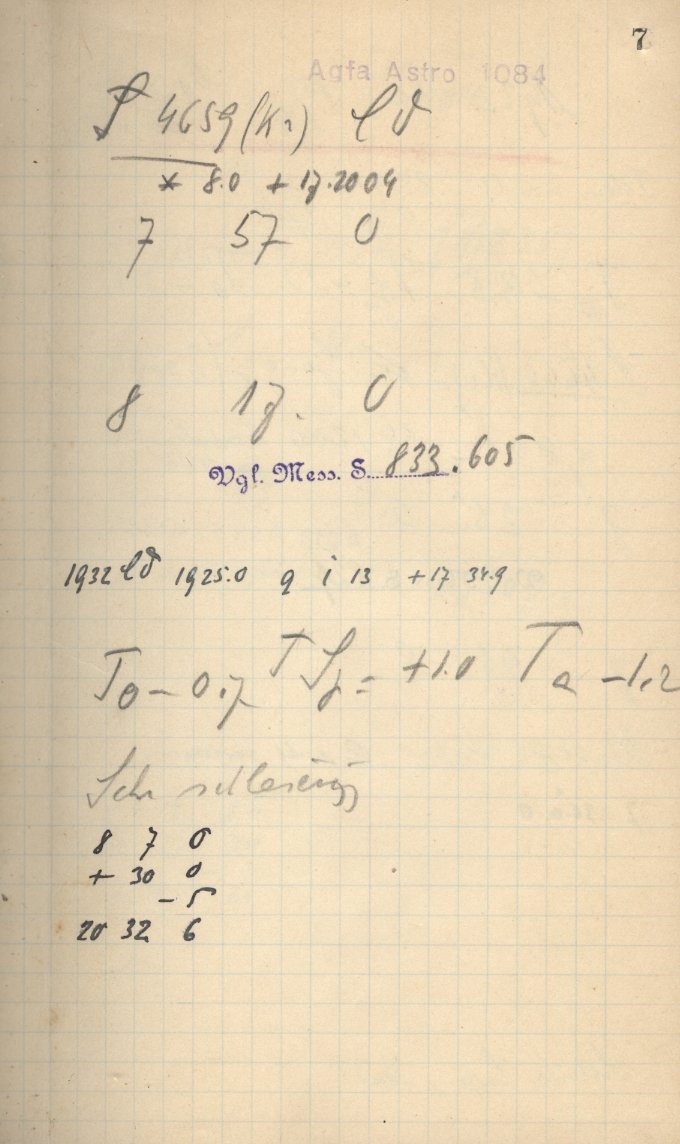 7
Agfa Astro 1084
P 4659 (Kr)
* 8.0 + 17.2004
7 57 0
8 17. 0
Vgl. Mess. S. 833.605
1932 1925.0 9 1 13 +17 34.9
T0 - 0.7 T = +1.0 Ta - 1.2
Sehr schleierig
8 7 0
+ 30 0
- 5
20 32 6